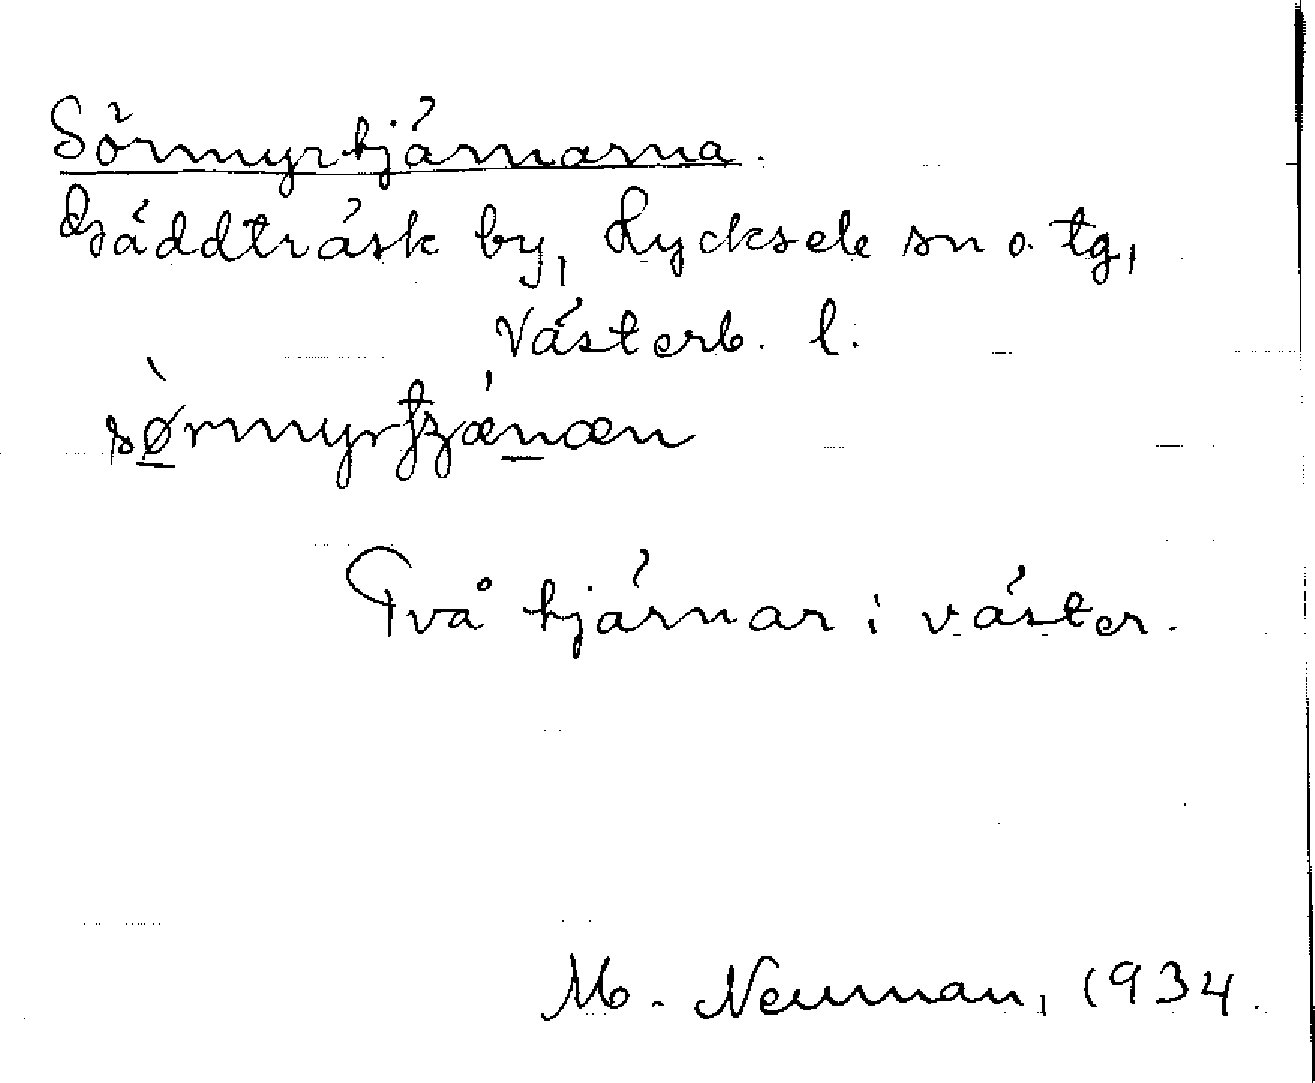 Sörmyrtjärnarna.
Gäddträsk by, Lycksele sn o. tg,
Västerb. l.
sø̲rmyrtʒæn̲æn
Två tjärnar i väster.
M. Neuman, 1934.